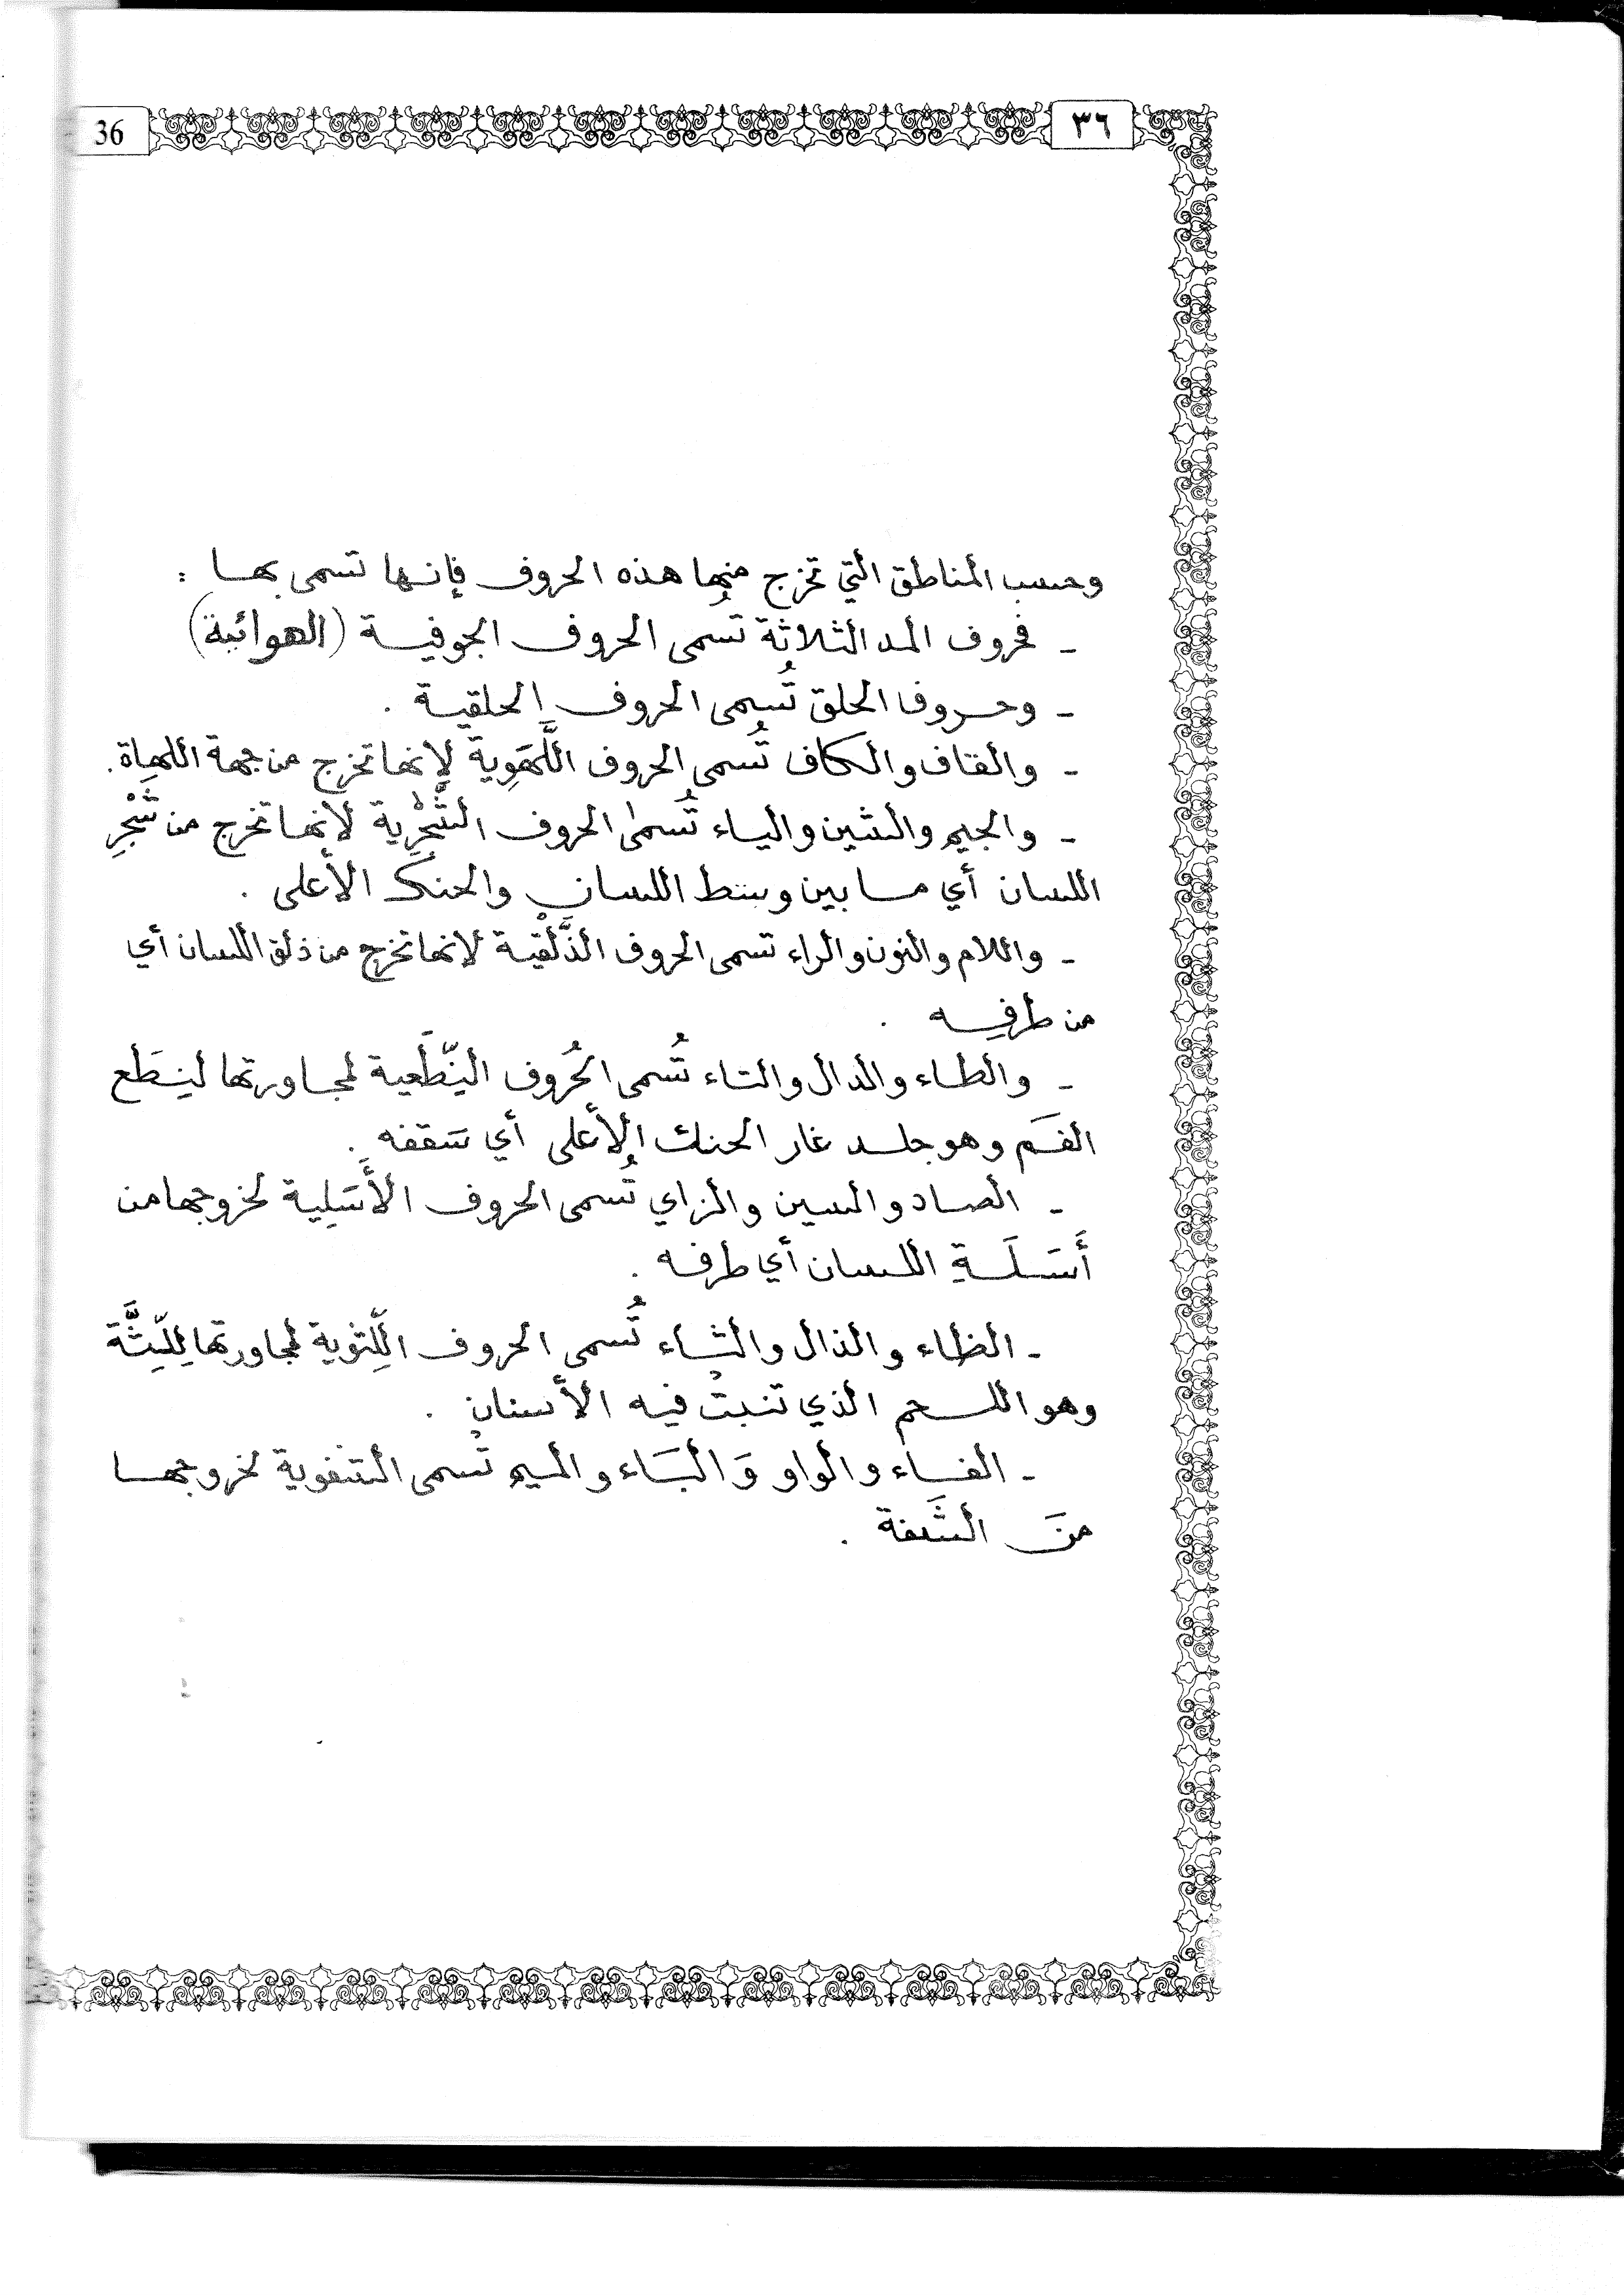 36
٣٦
وحسب المناطق التي تخرج منها هذه الحروف فإنها تسمى بها :
- فحروف المد الثلاثة تُسمى الحروف الجوفية (الهوائية)
- وحروف الحلق تُسمى الحروف الحلقية .
- والقاف والكاف تُسمى الحروف اللَّهَوِية لإنها تخرج من جهة اللهاة .
- والجيم والشين والياء تُسمى الحروف الشَّجْرِية لإنها تخرج من شَجْرِ
اللسان أي ما بين وسط اللسان والحنك الأعلى .
- واللام والنون والراء تسمى الحروف الذَّلْقية لانها تخرج من ذلق اللسان أي
من طرفه .
- والطاء والدال والتاء تُسمى الحُروف النِّطَعية لمجاورتها لنِطَع
الفَم وهو جلد غار الحنك الأعلى أي سَقفه .
- الصاد والسين والزاي تُسمى الحروف الأَسَلِية لخروجها من
أَسَلَةِ اللسان أي طرفه .
- الظاء والذال والثاء تُسمى الحروف اللِّثوية لمجاورتها لِلِّثَّة
وهو اللحم الذي تنبتُ فيه الأسنان .
- الفاء والواو وَالبَاء والميم تُسمى الشفوية لخروجها
منَ الشَفة .